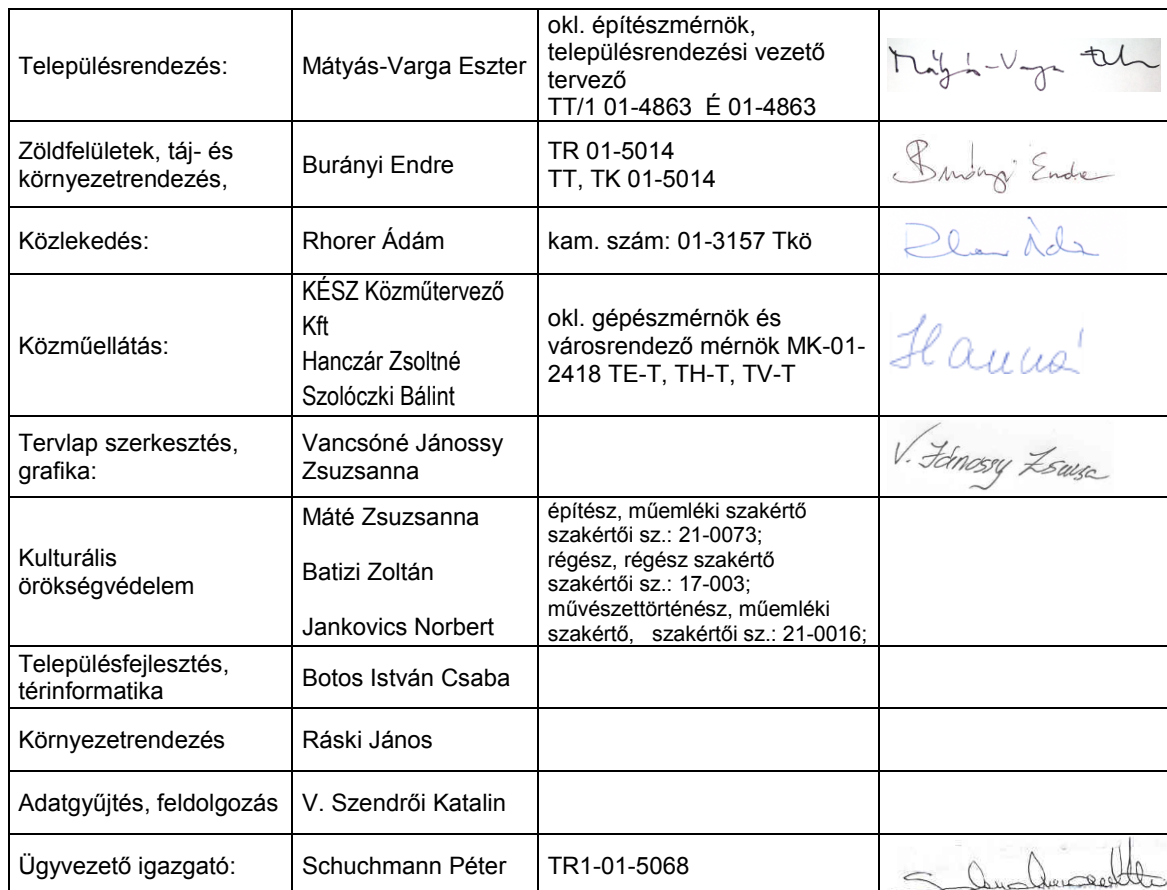 Településrendezés:
Mátyás-Varga Eszter
okl. építészmérnök,
településrendezési vezető
tervező
TT/1 01-4863 É 01-4863
Mátyás-Varga Eszter
Zöldfelületek, táj- és
környezetrendezés,
Burányi Endre
TR 01-5014
TT, TK 01-5014
Burányi Endre
Közlekedés:
Rhorer Ádám
kam. szám: 01-3157 Tkö
Rhorer Ádám
Közműellátás:
KÉSZ Közműtervező
Kft
Hanczár Zsoltné
Szolóczki Bálint
okl. gépészmérnök és
városrendező mérnök MK-01-
2418 TE-T, TH-T, TV-T
Tervlap szerkesztés,
grafika:
Vancsóné Jánossy
Zsuzsanna
V. Jánossy Zsuzsa
Kulturális
örökségvédelem
Máté Zsuzsanna
Batizi Zoltán
Jankovics Norbert
építész, műemléki szakértő
szakértői sz.: 21-0073;
régész, régész szakértő
szakértői sz.: 17-003;
művészettörténész, műemléki
szakértő, szakértői sz.: 21-0016;
Településfejlesztés,
térinformatika
Botos István Csaba
Környezetrendezés
Ráski János
Adatgyűjtés, feldolgozás
V. Szendrői Katalin
Ügyvezető igazgató:
Schuchmann Péter
TR1-01-5068